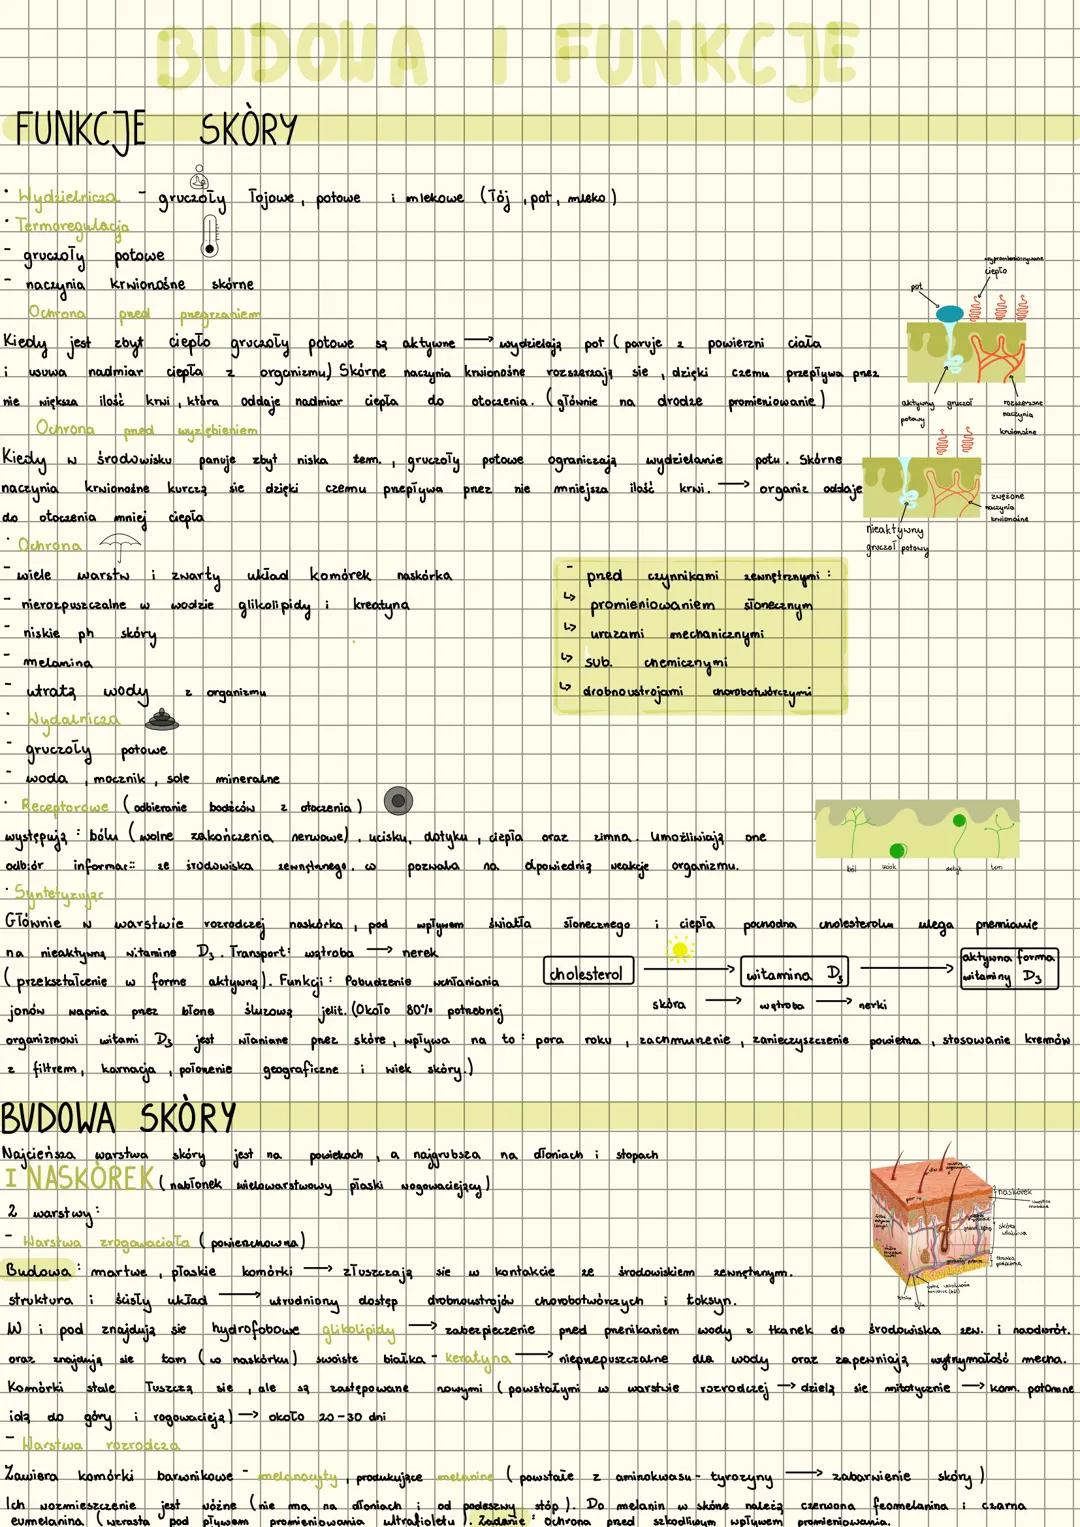 BUDOWA I FUNKCJE
FUNKCJE SKÒRY
· Wydzielnicza - gruczoły łojowe, potowe i mlekowe (łój, pot, mleko)
· Termoregulacja
- gruczoły potowe
- naczynia krwionośne skórne
Ochrona przed przegrzaniem
Kiedy jest zbyt ciepło gruczoły potowe są aktywne → wydzielają pot (paruje z powierzni ciała
i usuwa nadmiar ciepła z organizmu) Skórne naczynia krwionośne rozszerzają sie, dzięki czemu przepływa przez
nie większa ilość krwi, która oddaje nadmiar ciepła do otoczenia. (głównie na drodze promieniowanie)
Ochrona przed wyziębieniem
Kiedy w środowisku panuje zbyt niska tem., gruczoły potowe ograniczają wydzielanie potu. Skórne
naczynia krwionośne kurczą sie dzięki czemu przepływa przez nie mniejsza ilość krwi. → organiz oddaje
do otoczenia mniej ciepła
wypromieniowywane
ciepło
pot
aktywny gruczoł
potowy
rozszerzone
naczynia
krwionośne
zwężone
naczynia
krwionośne
nieaktywny
gruczoł potowy
· Ochrona
- wiele warstw i zwarty układ komórek naskórka
- nierozpuszczalne w wodzie glikolipidy i kreatyna
- niskie ph skóry
- melanina
- utratą wody z organizmu
- przed czynnikami zewnętrznymi:
↳ promieniowaniem słonecznym
↳ urazami mechanicznymi
↳ sub. chemicznymi
↳ drobnoustrojami chorobotwórczymi
· Wydalnicza
- gruczoły potowe
- woda, mocznik, sole mineralne
· Receptorowe (odbieranie bodźców z otoczenia)
występują: bólu (wolne zakończenia nerwowe), ucisku, dotyku, ciepła oraz zimna. Umożliwiają one
odbiór informac:: ze środowiska zewnętrznego. co pozwala na dpowiednią reakcje organizmu.
ból ucisk dotyk tem
· Syntetyzując
Głównie w warstwie rozrodczej naskórka, pod wpływem światła słonecznego i ciepła pochodna cholesterolu ulega przemianie
na nieaktywną witamine D₃. Transport: wątroba → nerek
(przekształcenie w forme aktywną). Funkcji: Pobudzenie wchłaniania
jonów wapnia przez błone śluzową jelit. (Około 80% potrzebnej
organizmowi witami D₃ jest właniane przez skóre, wpływa na to: pora roku, zachmurzenie, zanieczyszczenie powietrza, stosowanie kremów
z filtrem, karnacja, położenie geograficzne i wiek skóry.)
cholesterol → witamina D₃ → aktywna forma
witaminy D₃
skóra → wątroba → nerki
BUDOWA SKÒRY
Najcieńsza warstwa skóry jest na powiekach, a najgrubsza na dłoniach i stopach
I NASKÒREK (nabłonek wielowarstwowy płaski rogowaciejący)
2 warstwy:
- Warstwa zrogowaciała (powierzchowna)
Budowa: martwe, płaskie komórki → złuszczają sie w kontakcie ze środowiskiem zewnętrznym.
struktura i ścisły układ → utrudniony dostęp drobnoustrojów chorobotwórczych i toksyn.
W i pod znajdują sie hydrofobowe glikolipidy → zabezpieczenie przed przenikaniem wody z tkanek do środowiska zew. i naodwrót.
oraz znajdują sie tam (w naskórku) swoiste białka - keratyna → nieprzepuszczalne dla wody oraz zapewniają wytrzymałość mecha.
Komórki stale Tuszczą sie, ale są zastępowane nowymi (powstałymi w warstwie rozrodczej → dzielą sie mitotycznie → kom. potomne
idą do góry i rogowacieją) → około 20-30 dni
- Warstwa rozrodcza
Zawiera komórki barwnikowe - melanocyty, produkujące melanine (powstałe z aminokwasu - tyrozyny → zabarwienie skóry)
Ich rozmieszczenie jest różne (nie ma na dłoniach i od podeszwy stóp). Do melanin w skórze należą czerwona feomelanina i czarna
eumelanina (wzrasta pod pływem promieniowania ultrafioletu). Zadanie: Ochrona przed szkodliwym wpływem promieniowania.
naskórek
skóra
właściwa
tkanka
podskórna